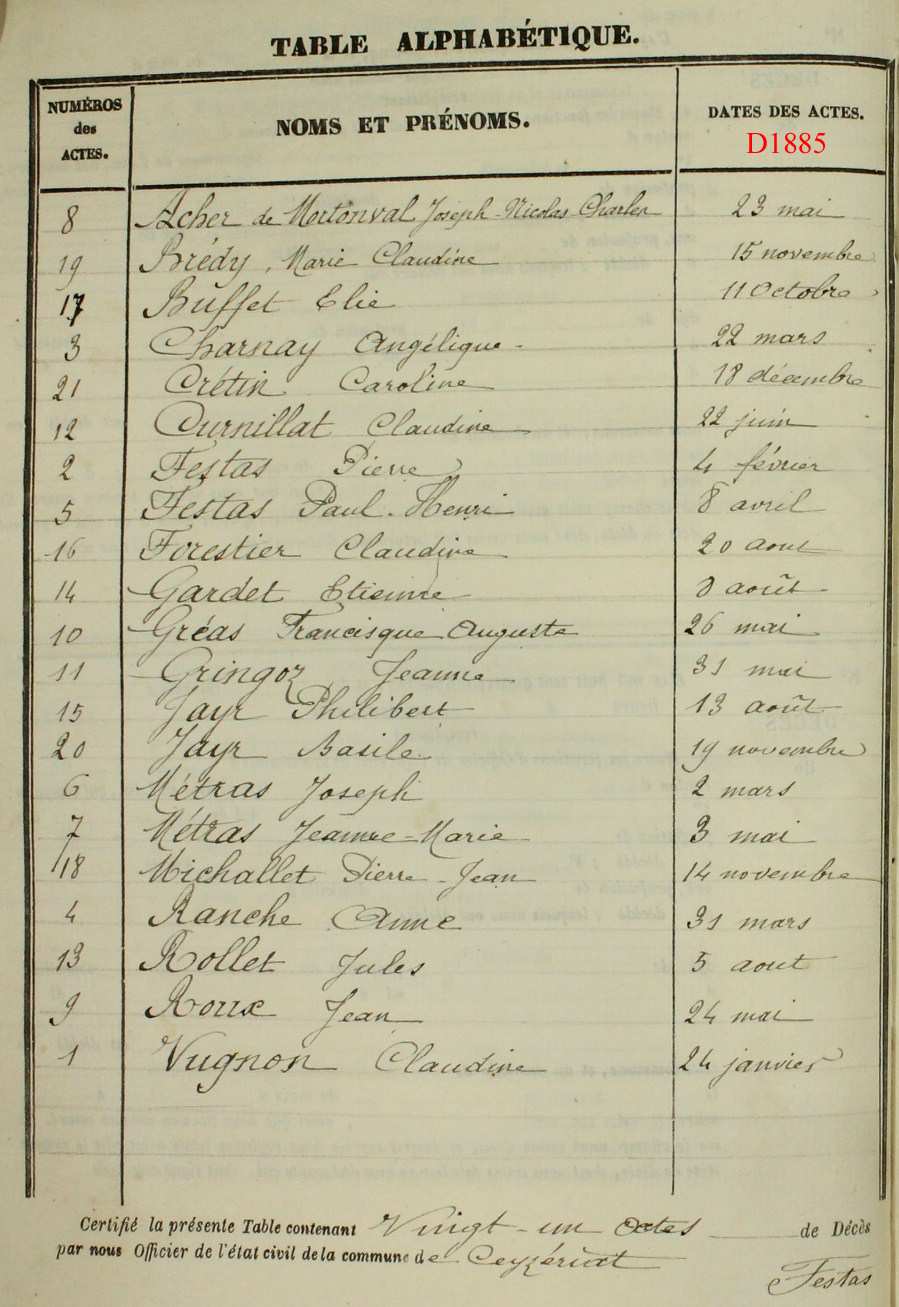 TABLE ALPHABÉTIQUE.
NUMÉROS des ACTES. NOMS ET PRÉNOMS. DATES DES ACTES.
D1885
8 Acher de Mortonval Joseph-Nicolas Charles 23 mai
19 Brédy, Marie Claudine 15 novembre
17 Buffet Elie 11 Octobre
3 Charnay Angélique 22 mars
21 Crétin Caroline 18 décembre
12 Curnillat Claudine 22 juin
2 Festas Pierre 4 février
5 Festas Paul-Henri 8 avril
16 Forestier Claudine 20 aout
14 Gardet Etienne 8 août
10 Gréas Francisque Auguste 26 mai
11 Gringoz Jeanne 31 mai
15 Jayr Philibert 13 août
20 Jayr Basile 19 novembre
6 Métras Joseph 2 mars
7 Métras Jeanne-Marie 3 mai
18 Michallet Pierre-Jean 14 novembre
4 Ranche Anne 31 mars
13 Rollet Jules 5 aout
9 Roux Jean 24 mai
1 Vugnon Claudine 24 janvier
Certifié la présente Table contenant Vingt-un actes de Décès
par nous Officier de l'état civil de la commune de Ceyzériat
Festas